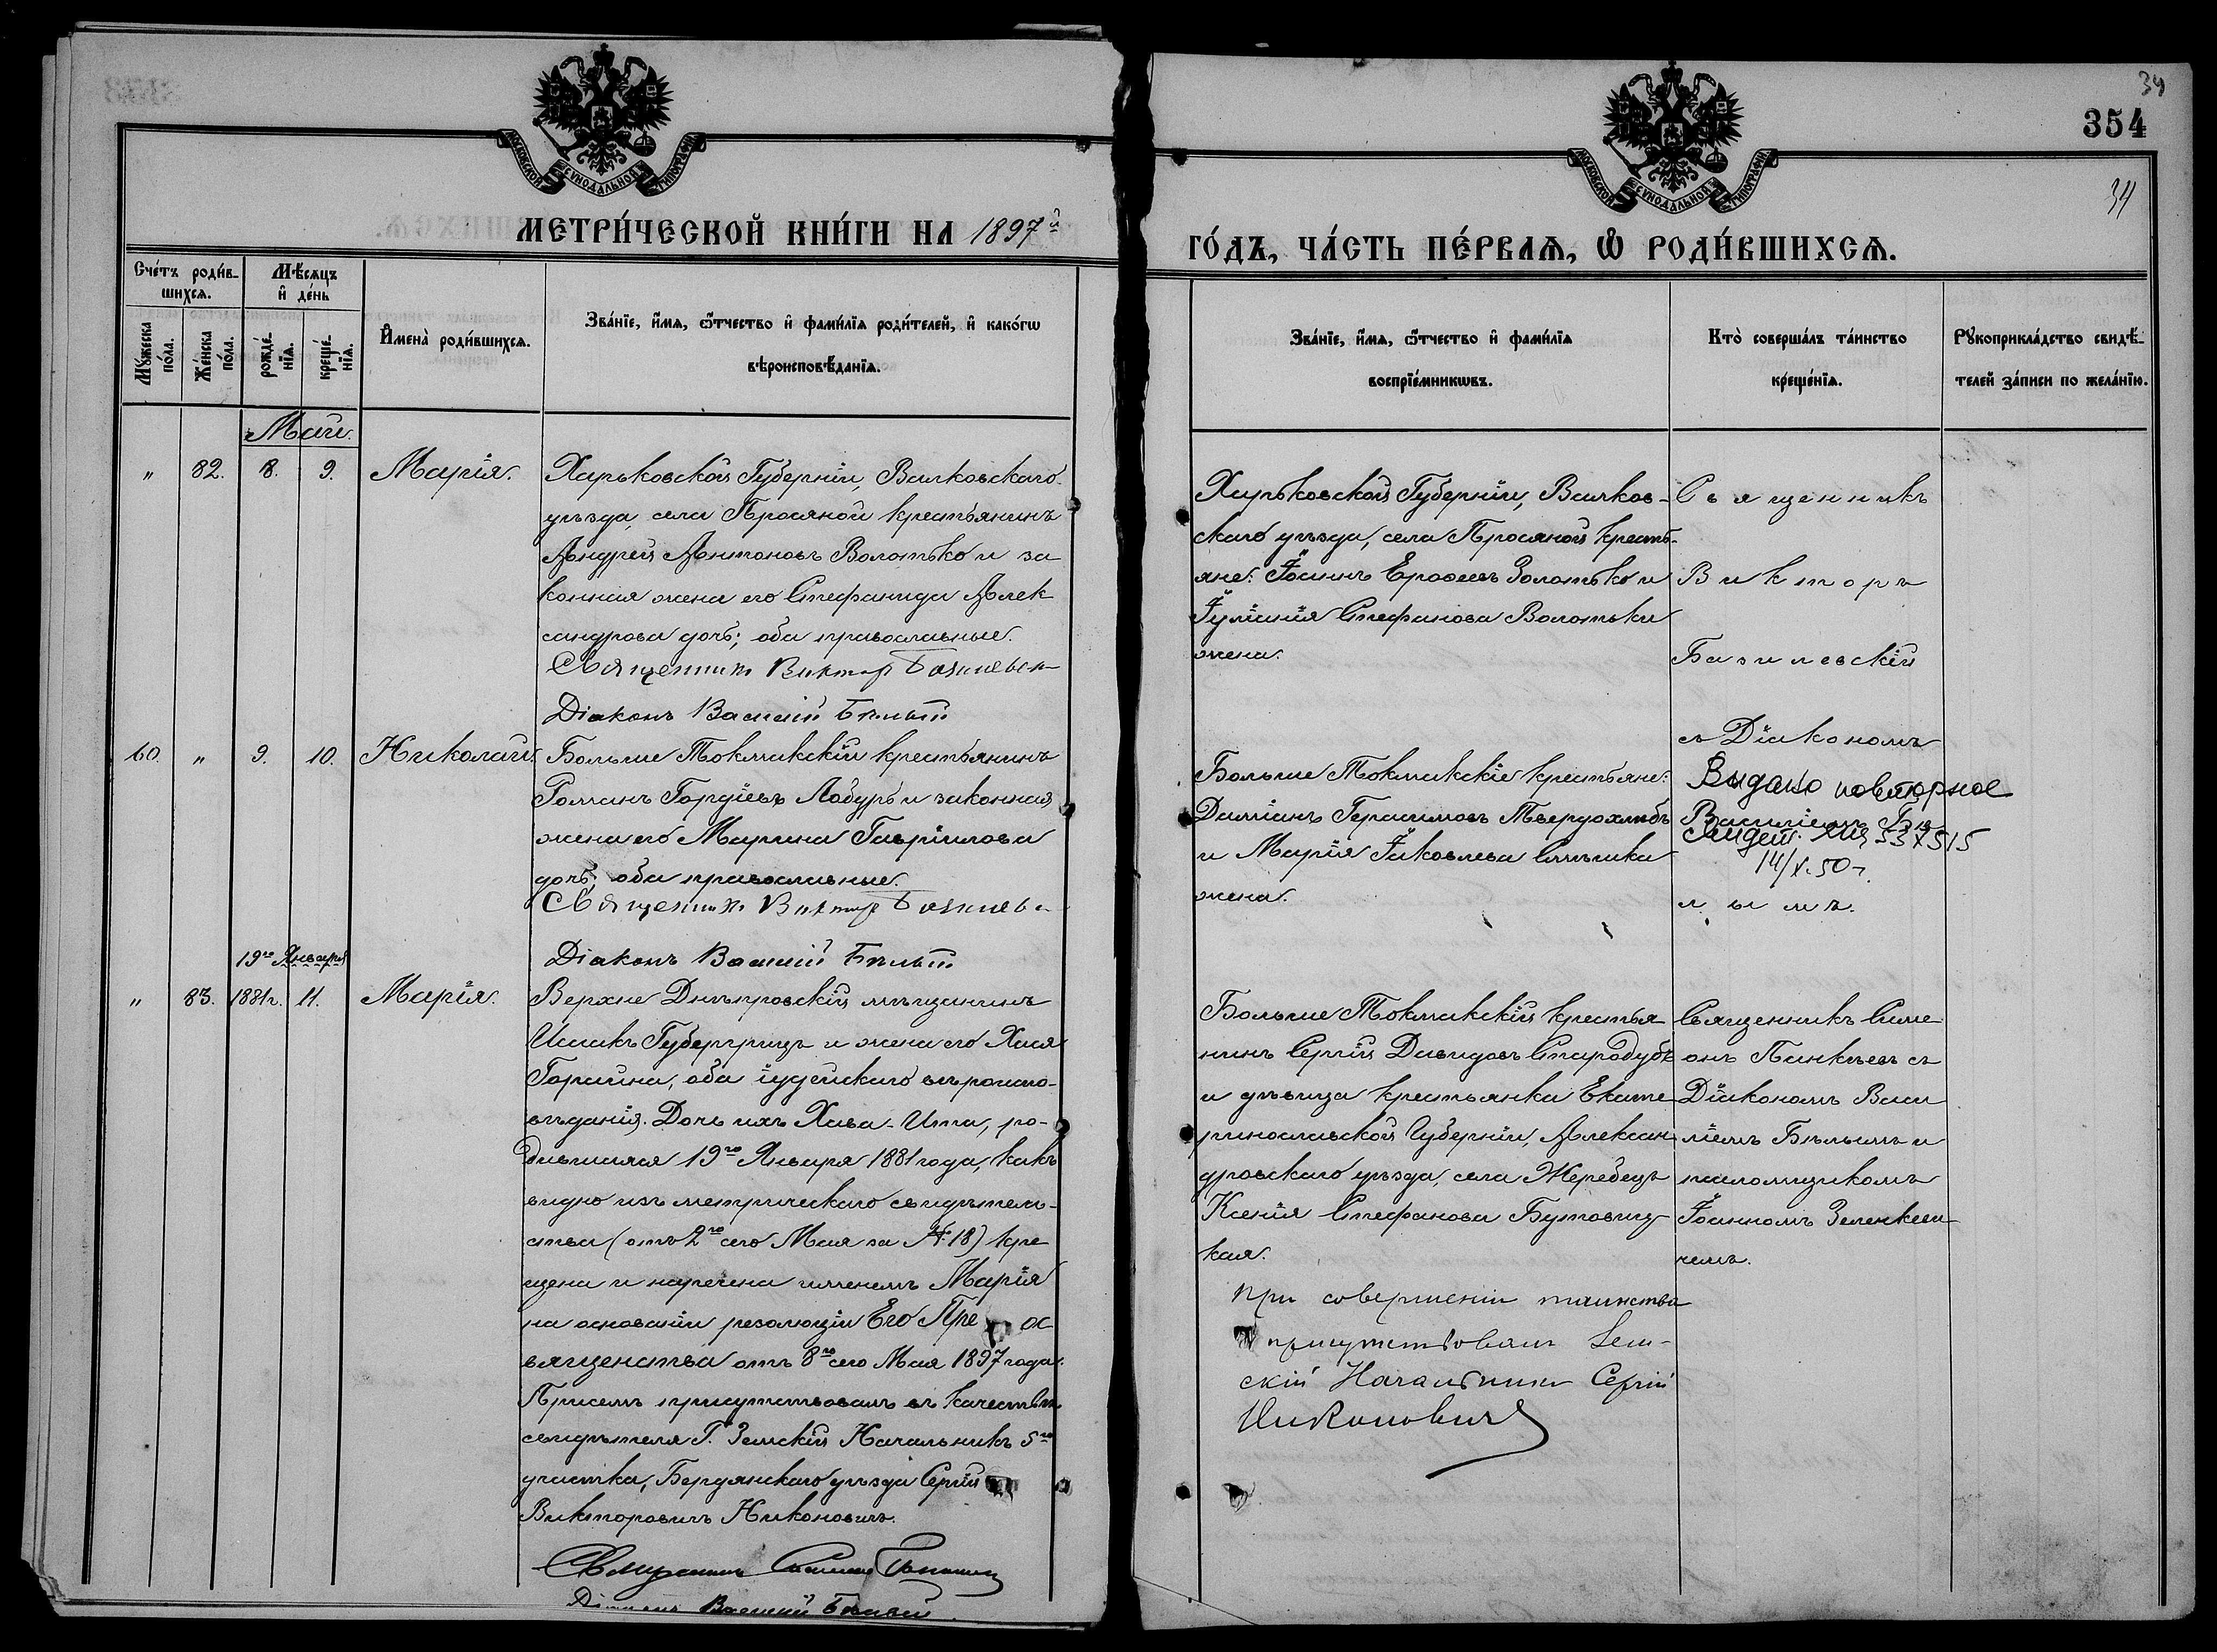 34
354
34
МОСКОВСКОЙ СѴНОДАЛЬНОЙ ТИПОГРАФІИ
МОСКОВСКОЙ СѴНОДАЛЬНОЙ ТИПОГРАФІИ
МЕТРИ́ЧЕСКОЙ КНИ́ГИ НА 1897й
ГО́ДЪ, ЧА́СТЬ ПЕ́РВАѦ, Ѡ҆ РОДИ́ВШИХСѦ.
Сче́тъ роди́в-
шихсѧ.
Мѣ́сѧцъ
и҆ де́нь
Мꙋ́жеска по́ла.
Же́нска по́ла.
рожде́-нїѧ.
креще́-нїѧ.
И҆мена̀ роди́вшихсѧ.
Зва́нїе, и҆́мѧ, ѻ҆́тчество и҆ фами́лїѧ роди́телей, и҆ како́гѡ
вѣроисповѣ́данїѧ.
Зва́нїе, и҆́мѧ, ѻ҆́тчество и҆ фами́лїѧ
воспрїе́мникѡвъ.
Кто̀ соверша́лъ та́инство
креще́нїѧ.
Рꙋкоприкла́дство свидѣ́-
телей за́писи по жела́нїю.
Май.
" 82. 8. 9. Марія.
Харьковской Губерніи, Валковскаго
уѣзда, села Просяной крестьянинъ
Андрей Антоновъ Волотько и за
конная жена его Стефанида Алек
сандрова дочь; оба православные.
Священникъ Викторъ Базилевск
Діаконъ Василій Бѣлый
Харьковской Губерніи, Валков-
скаго уѣзда, села Просяной кресть-
яне: Іоаннъ Ерофеевъ Золотько и
Іуліанія Стефанова Волотька
жена.
Священникъ
Викторъ
Базилевскій
съ Діакономъ
60. " 9. 10. Николай.
Больше Токмакскій крестьянинъ
Романъ Гордіевъ Лабуръ и законная
жена его Марина Гавріилова
дочь; оба православные.
Священникъ Викторъ Базилевс
Діаконъ Василій Бѣлый
Больше Токмакскіе крестьяне:
Даміанъ Герасимовъ Твердохлѣбъ
и Марія Іаковлева
жена.
Выдано повторное
Василіемъ Бѣ
Свидет.
14/X.50 г.
лымъ.
19го Января
" 83. 1881г. 11. Марія.
Верхне Днѣпровскій мѣщанинъ
Исаакъ Губергрицъ и жена его Хася
Гормина, оба іудейскаго вѣроиспо-
вѣданія. Дочь ихъ Хава-Ита, ро-
дившаяся 19го Января 1881 года, какъ
видно изъ метрическаго свидѣтель-
ства (отъ 2го сего Мая за № 18) кре
щена и наречена именемъ Марія
на основаніи резолюціи Его Прео ос
вященства отъ 8го сего Мая 1897 года.
При семъ присутствовалъ въ качествѣ
свидѣтеля Г. Земскій Начальникъ 5го
участка, Бердянскаго уѣзда Сергій
Викторовичъ Никоновичъ.
Священникъ Симеонъ
Діаконъ Василій Бѣлый.
Больше Токмакскій крестья
нинъ Сергій Давидовъ Стародубъ
и дѣвица крестьянка Екате
ринославской Губерніи, Алексан
дровскаго уѣзда, села Жеребецъ
Ксенія Стефанова Бутовиц
кая.
При совершеніи таинства
присутствовалъ Зем-
скій Начальникъ Сергій
Никоновичъ
Священникъ Симе
онъ Панкѣевъ съ
Діакономъ Васи
ліемъ Бѣлымъ и
псаломщикомъ
Іоанномъ Зеленкеви
чемъ.